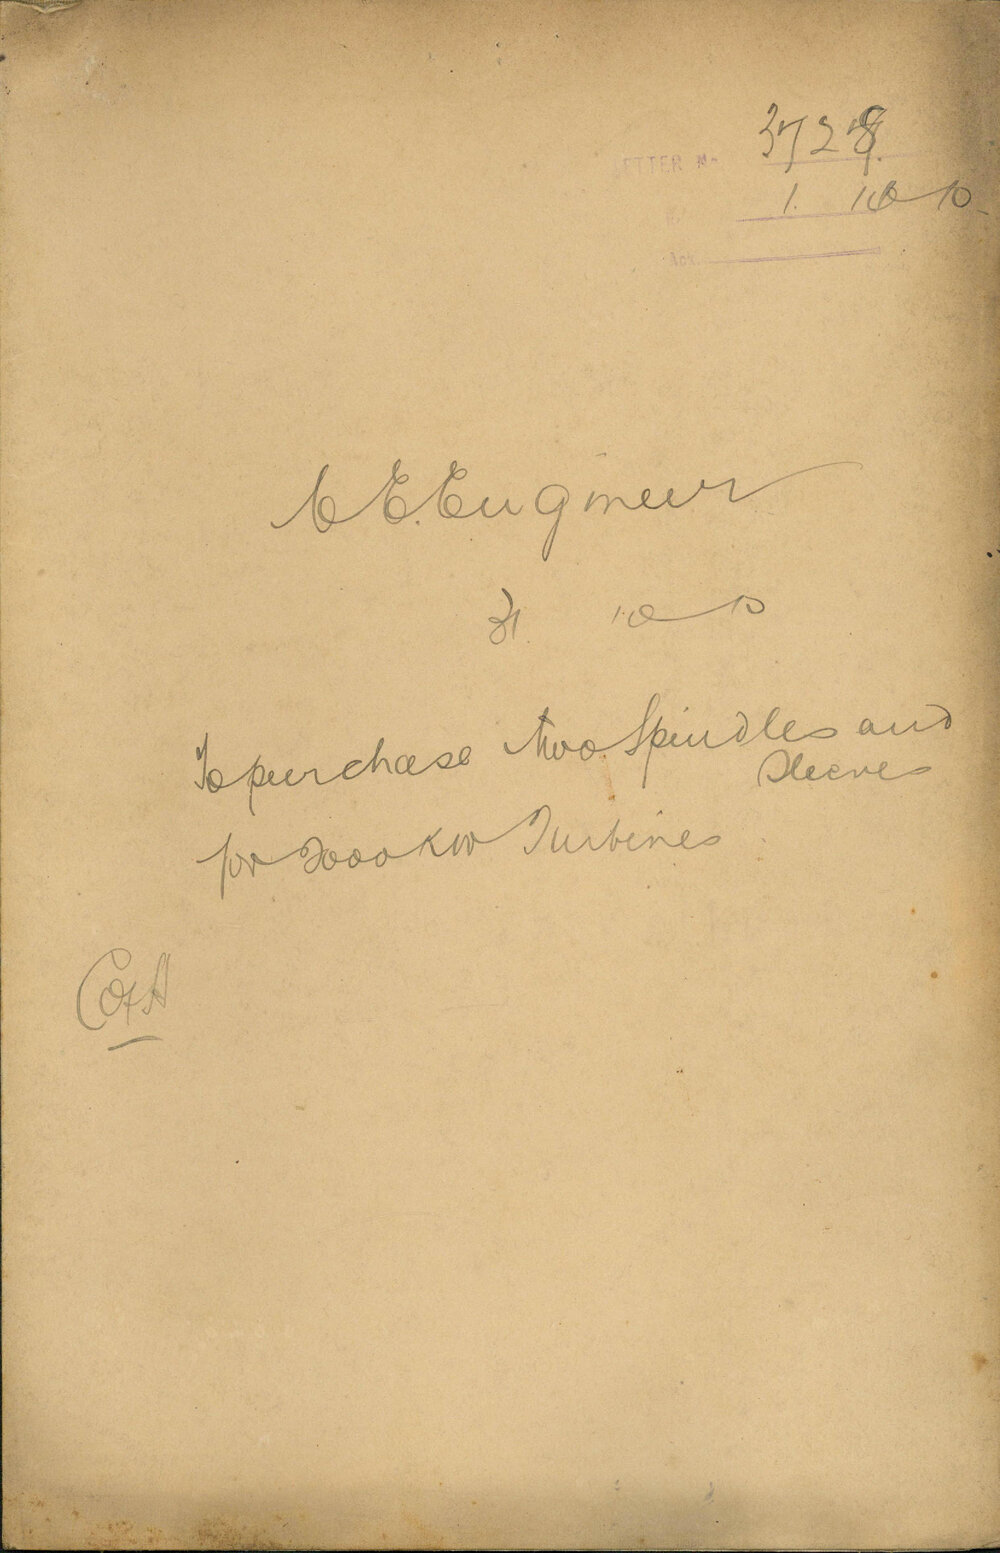 LETTER No. 3728
1. 10 10
Ack.
C E. Engineer
31. 10 10
To purchase two Spindles and
Sleeves
for 2000 KW Turbines